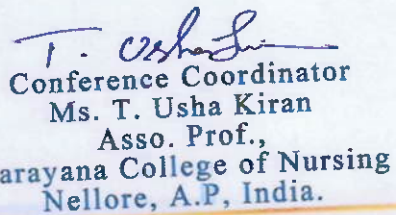 T. Usha
Conference Coordinator
Ms. T. Usha Kiran
Asso. Prof.,
arayana College of Nursing
Nellore, A.P, India.